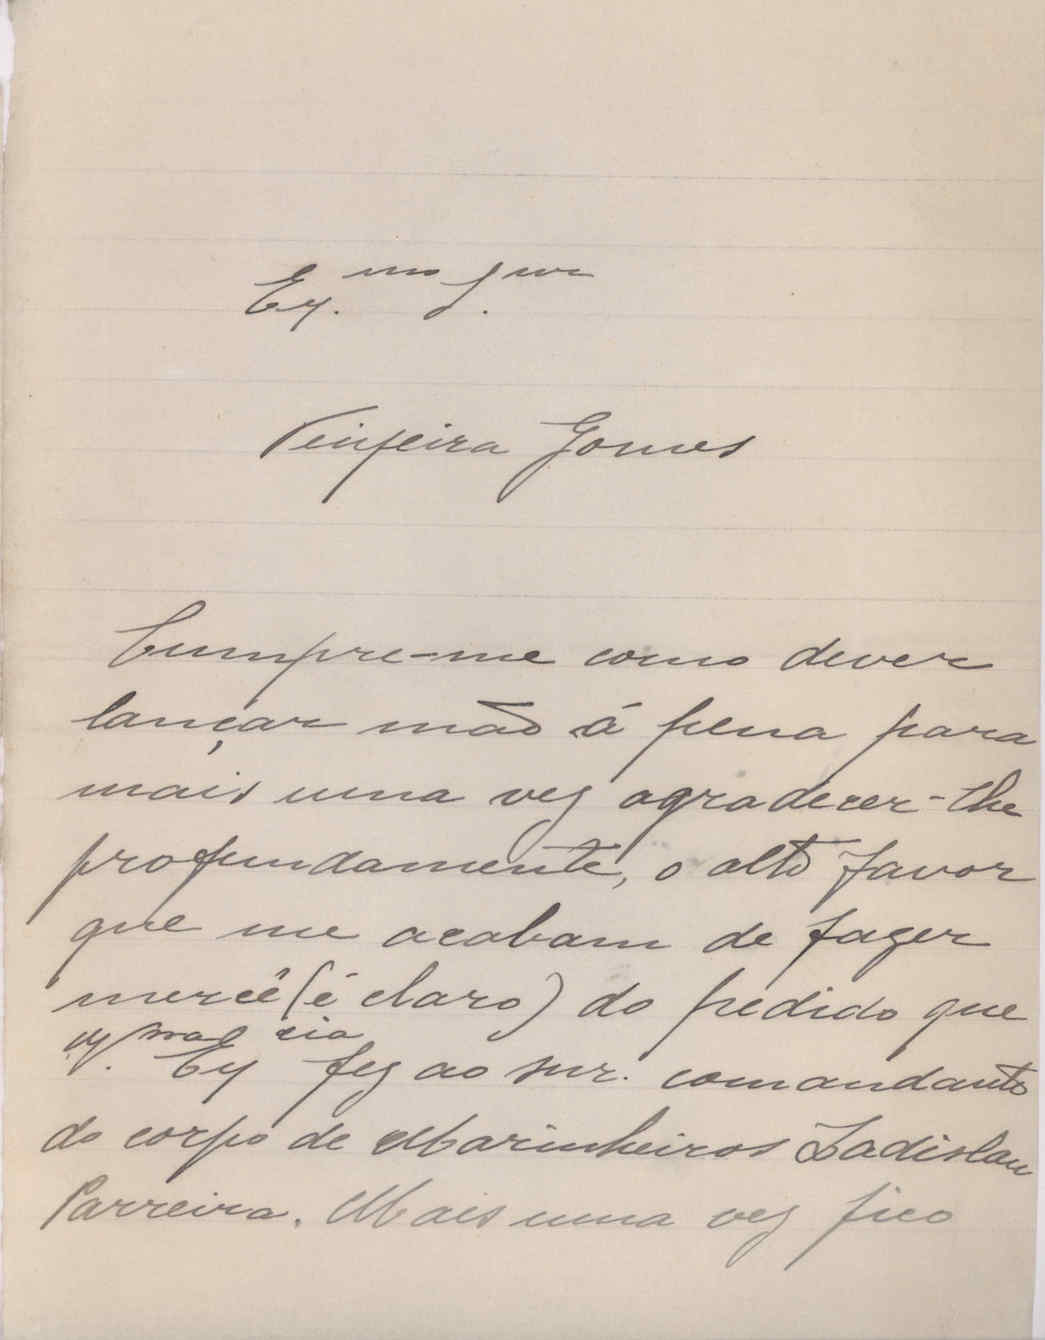 Ex.mo Snr.
Teixeira Gomes
Cumpre-me como dever
lançar mão á pena para
mais uma vez agradecer-lhe
profundamente, o alto favor
que me acabam de fazer
mercê (é claro) do pedido que
V.ª Ex.cia fez ao snr. comandante
do corpo de Marinheiros Ladislau
Parreira. Mais uma vez fico